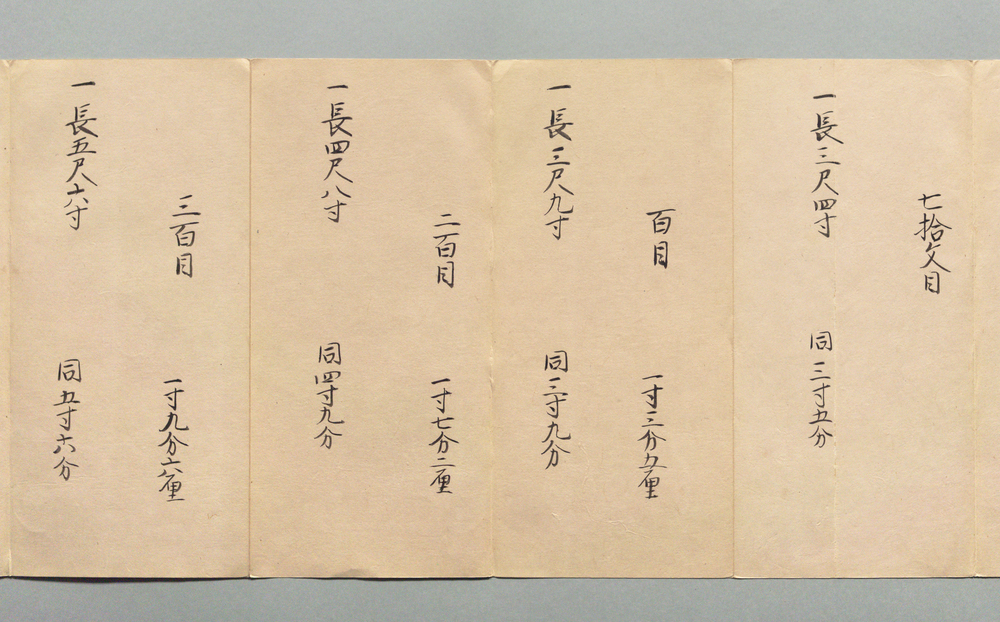 七拾文目
一長三尺四寸 同三寸五分
百目 一寸三分五厘
一長三尺九寸 同三寸九分
二百目 一寸七分二厘
一長四尺八寸 同四寸九分
三百目 一寸九分六厘
一長五尺六寸 同五寸六分